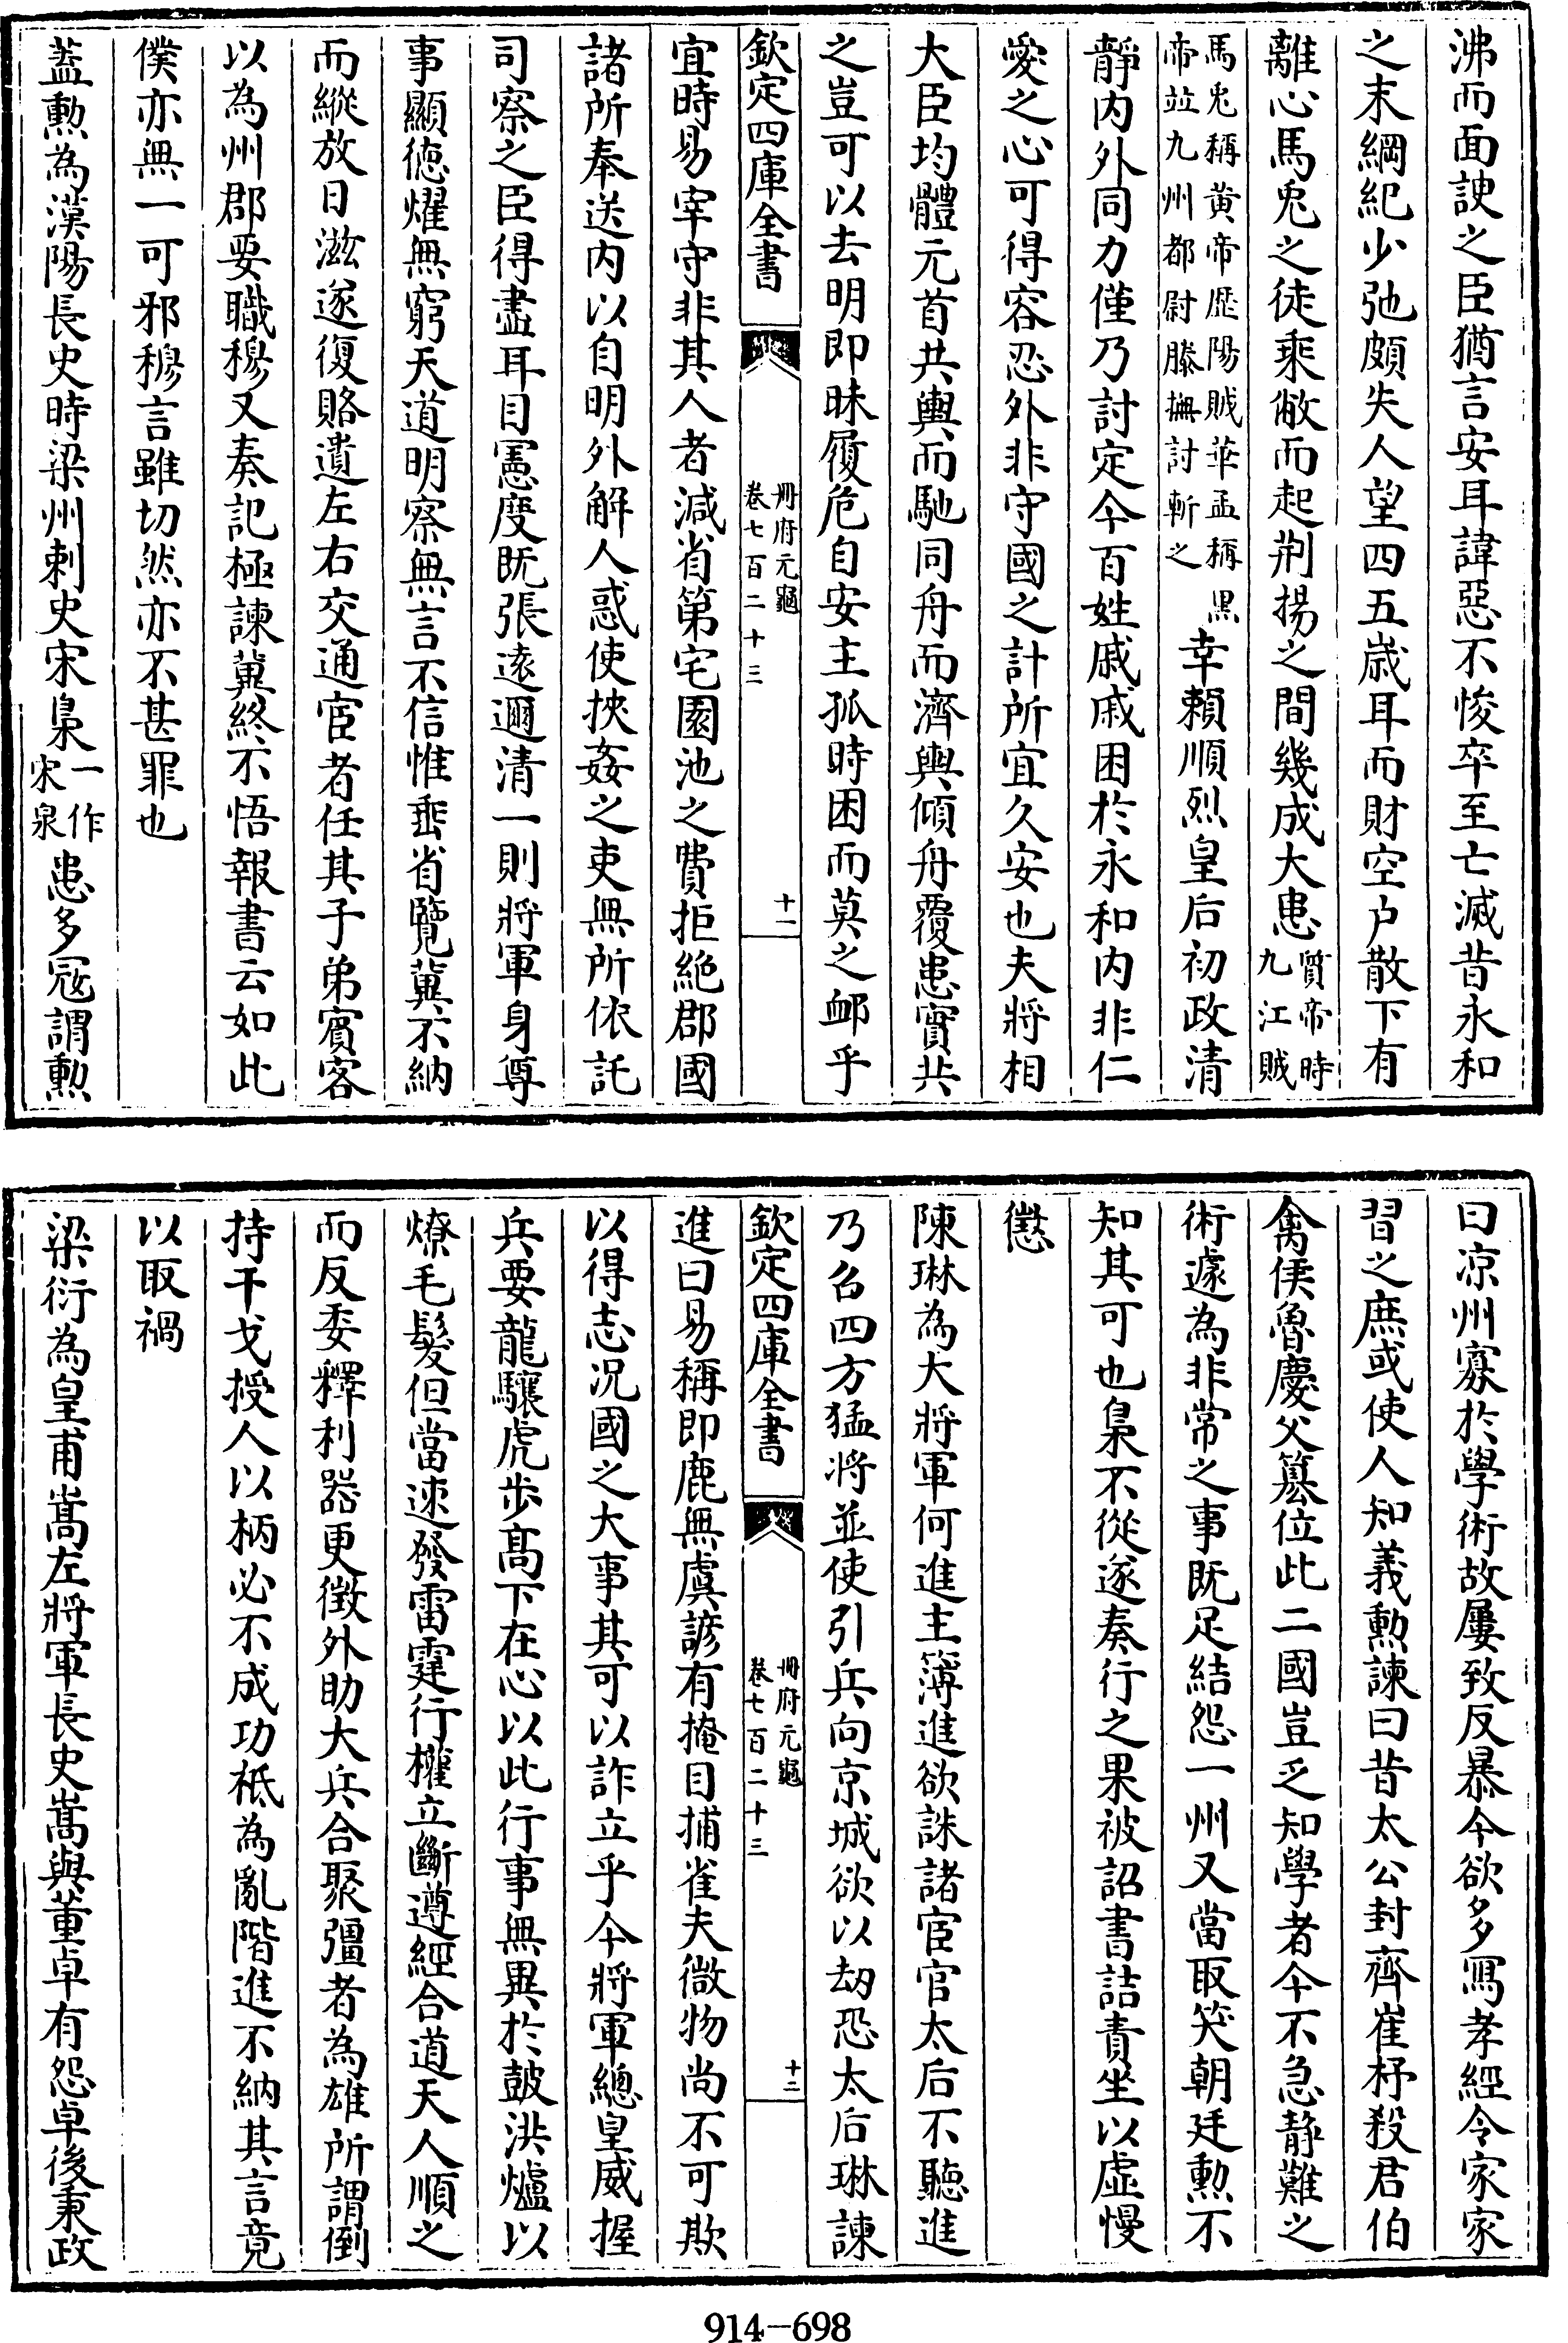 沸而面諛之臣猶言安耳諱惡不悛卒至亡滅昔永和
之末綱紀少弛頗失人望四五歳耳而財空户散下有
離心馬兎之徒乘敝而起荆揚之間幾成大患質帝時九江賊
馬兎稱黄帝歴陽賊華孟稱黒帝竝九州都尉滕撫討斬之幸賴順烈皇后初政清
靜内外同力僅乃討定今百姓戚戚困於永和内非仁
愛之心可得容忍外非守國之計所宜久安也夫將相
大臣均體元首共輿而馳同舟而濟輿傾舟覆患實共
之豈可以去明即昧履危自安主孤時困而莫之衈乎
欽定四庫全書
冊府元龜
卷七百二十三
十一
宜時易宰守非其人者減省第宅園池之費拒絶郡國
諸所奉送内以自明外解人惑使挾姦之吏無所依託
司察之臣得盡耳目憲度既張逺邇清一則將軍身尊
事顯徳燿無窮天道明察無言不信惟垂省覽冀不納
而縱放日滋遂復賂遺左右交通宦者任其子弟賓客
以為州郡要職穆又奏記極諫冀終不悟報書云如此
僕亦無一可邪穆言雖切然亦不甚罪也
葢勲為漢陽長史時梁州刺史宋梟一作宋泉患多寇謂勲
曰凉州寡於學術故屢致反暴今欲多寫孝經令家家
習之庶或使人知義勲諫曰昔太公封齊崔杼殺君伯
禽侯魯慶父簒位此二國豈乏知學者今不急静難之
術遽為非常之事既足結怨一州又當取笑朝廷勲不
知其可也梟不從遂奏行之果被詔書詰責坐以虛慢
懲
陳琳為大將軍何進主簿進欲誅諸宦官太后不聽進
乃召四方猛將並使引兵向京城欲以刼恐太后琳諫
欽定四庫全書
冊府元龜
卷七百二十三
十二
進曰易稱即鹿無虞諺有掩目捕雀夫微物尚不可欺
以得志况國之大事其可以詐立乎今將軍總皇威握
兵要龍驤虎步髙下在心以此行事無異於鼓洪爐以
燎毛髮但當速發雷霆行權立斷遵經合道天人順之
而反委釋利器更徴外助大兵合聚彊者為雄所謂倒
持干戈授人以柄必不成功秪為亂階進不納其言竟
以取禍
梁衍為皇甫嵩左將軍長史嵩與董卓有怨卓後秉政
914-698